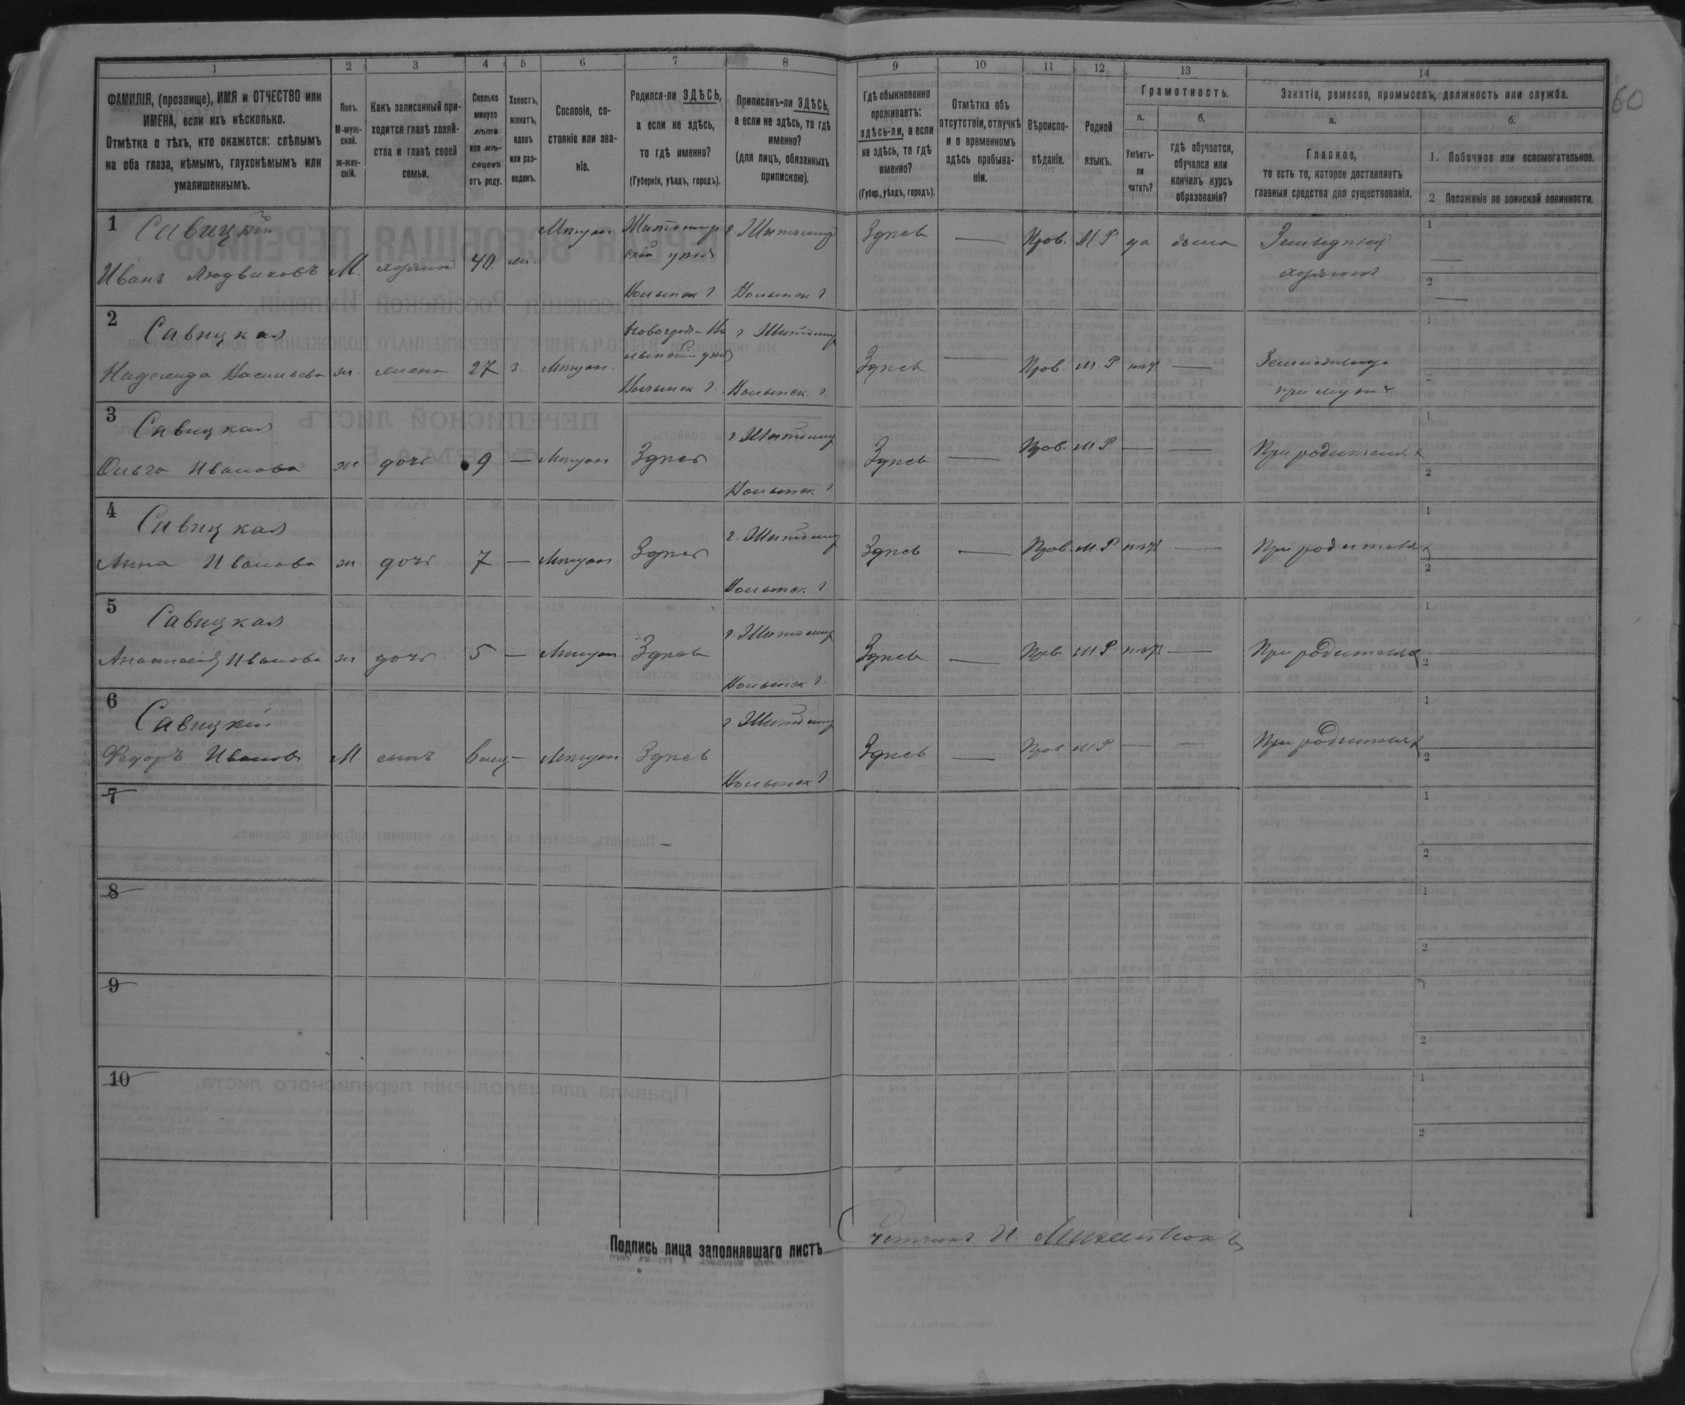 1 2 3 4 5 6 7 8 9 10 11 12 13 14
60
ФАМИЛІЯ, (прозвище), ИМЯ и ОТЧЕСТВО или
ИМЕНА, если ихъ нѣсколько.
Отмѣтка о тѣхъ, кто окажется: слѣпымъ
на оба глаза, нѣмымъ, глухонѣмымъ или
умалишеннымъ.
Полъ.
М-муж-
ской.
ж-жен-
скій.
Какъ записанный при-
ходится главѣ хозяй-
ства и главѣ своей
семьи.
Сколько
минуло
лѣтъ
или мѣ-
сяцевъ
отъ роду.
Холостъ,
женатъ,
вдовъ
или раз-
веденъ.
Сословіе, со-
стояніе или зва-
ніе.
Родился-ли ЗДѢСЬ,
а если не здѣсь,
то гдѣ именно?
(Губернія, уѣздъ, городъ).
Приписанъ-ли ЗДѢСЬ,
а если не здѣсь, то гдѣ
именно?
(для лицъ, обязанныхъ
припискою).
Гдѣ обыкновенно
проживаетъ:
здѣсь-ли, а если
не здѣсь, то гдѣ
именно?
(Губер., уѣздъ, городъ).
Отмѣтка объ
отсутствіи, отлучкѣ
и о временномъ
здѣсь пребыва-
ніи.
Вѣроиспо-
вѣданіе.
Родной
языкъ.
Грамотность.
а.
Умѣетъ-
ли
читать?
б.
гдѣ обучается,
обучался или
кончилъ курсъ
образованія?
Занятія, ремесло, промыселъ, должность или служба.
а.
Главное,
то есть то, которое доставляетъ
главныя средства для существованія.
б.
1. Побочное или вспомогательное.
2 Положеніе по воинской повинности.
1 Савицкій Мѣщан. Житомир г. Житомир Здѣсь — Прав. М. Р да дома Земледѣлец 1 —
Иванъ Людвиковъ М. хозяин 40 скій уѣзд хозяинъ 2 —
Волынск г. Волынск г.
2 Савицкая г. Житомир 1
Надежда Васильева ж жена 27 з. Мѣщан. Здѣсь — Прав. М. Р нѣт — 2
Волынск г. Волынск. г. при мужѣ
3 Савицкая г. Житомир 1
Ольга Иванова ж дочь 9 — Мѣщан Здѣсь Здѣсь — Прав. М Р — — При родителях 2
Волынск г.
4 Савицкая г. Житомир 1
Анна Иванова ж дочь 7 — Мѣщан Здѣсь Здѣсь — Прав. М Р нѣт — При родителях 2
Волынск. г.
5 Савицкая г. Житомир 1
Анастасія Иванова ж дочь 5 — Мѣщан Здѣсь Здѣсь — Прав М Р нѣт — При родителях 2
Волынск г.
6 Савицкій г. Житомир 1
Федоръ Иванов М сынъ Мѣщан Здѣсь Здѣсь — Прав М Р — — При родителях 2
Волынск г
7 1
2
8 1
2
9 1
2
10 1
2
Подпись лица заполнявшаго листъ
Счетчикъ И